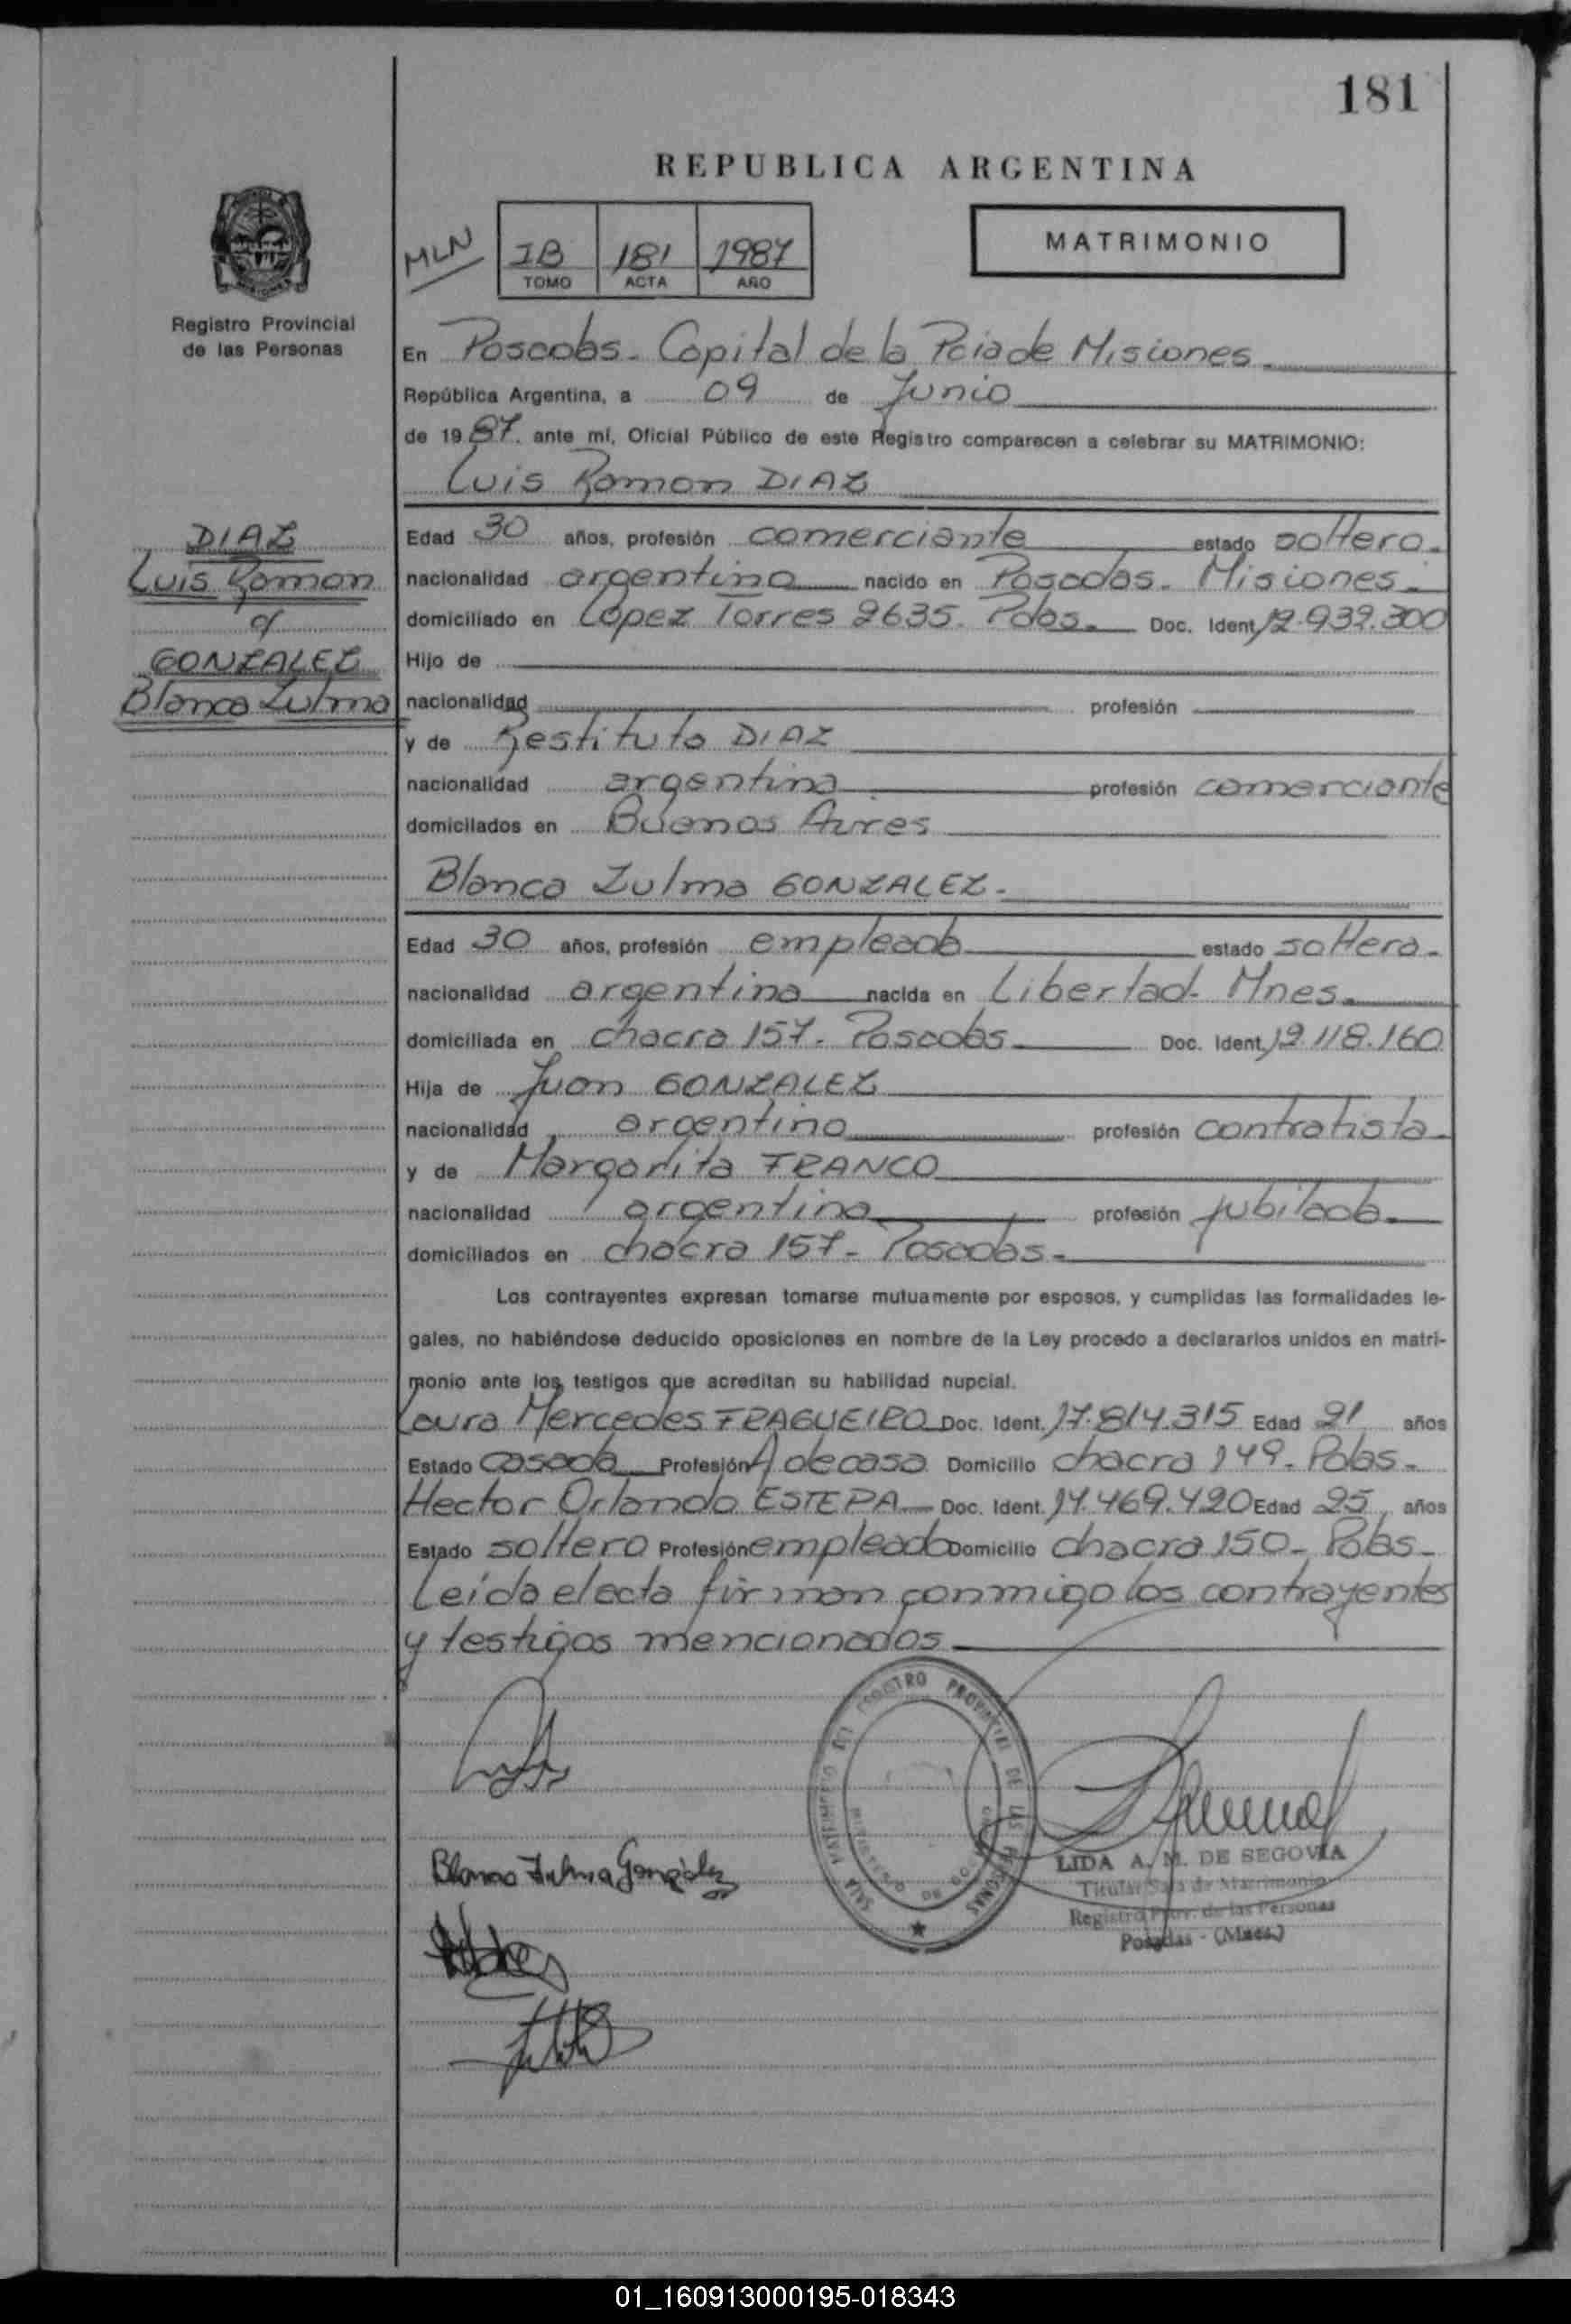 181
REPUBLICA ARGENTINA
MLN
IB 181 1987
TOMO ACTA AÑO
MATRIMONIO
Registro Provincial
de las Personas
En Posadas - Capital de la Pcia de Misiones
República Argentina, a 09 de Junio
de 1987. ante mí, Oficial Público de este Registro comparecen a celebrar su MATRIMONIO:
Luis Ramon DIAZ
DIAZ
Luis Ramon
c/
GONZALEZ
Blanca Zulma
Edad 30 años, profesión comerciante estado soltero.
nacionalidad argentina nacido en Posadas - Misiones -
domiciliado en Lopez Torres 2635. Pdas. Doc. Ident. 12.939.300
Hijo de
nacionalidad profesión
y de Restituta DIAZ
nacionalidad argentina profesión comerciante
domicilados en Buenos Aires
Blanca Zulma GONZALEZ.
Edad 30 años, profesión empleada estado soltera.
nacionalidad argentina nacida en Libertad - Mnes.
domiciliada en chacra 157 - Posadas Doc. Ident. 12.118.160
Hija de Juan GONZALEZ
nacionalidad argentino profesión contratista
y de Margarita FRANCO
nacionalidad argentina profesión jubilada
domiciliados en chacra 157 - Posadas -
Los contrayentes expresan tomarse mutuamente por esposos, y cumplidas las formalidades le-
gales, no habiéndose deducido oposiciones en nombre de la Ley procedo a declararlos unidos en matri-
monio ante los testigos que acreditan su habilidad nupcial.
Laura Mercedes FRAGUEIRO Doc. Ident. 17.814.315 Edad 21 años
Estado casada Profesión A de casa Domicilio chacra 149 - Pdas -
Hector Orlando ESTEPA Doc. Ident. 14.469.420 Edad 25 años
Estado soltero Profesión empleado Domicilio chacra 150 - Pdas -
Leída el acta firman conmigo los contrayentes
y testigos mencionados
REGISTRO PROVINCIAL DE LAS PERSONAS
Blanca Zulma González
LIDA A. M. DE SEGOVIA
Titular Sala de Matrimonio
Registro Prov. de las Personas
Posadas - (Mnes.)
01_160913000195-018343